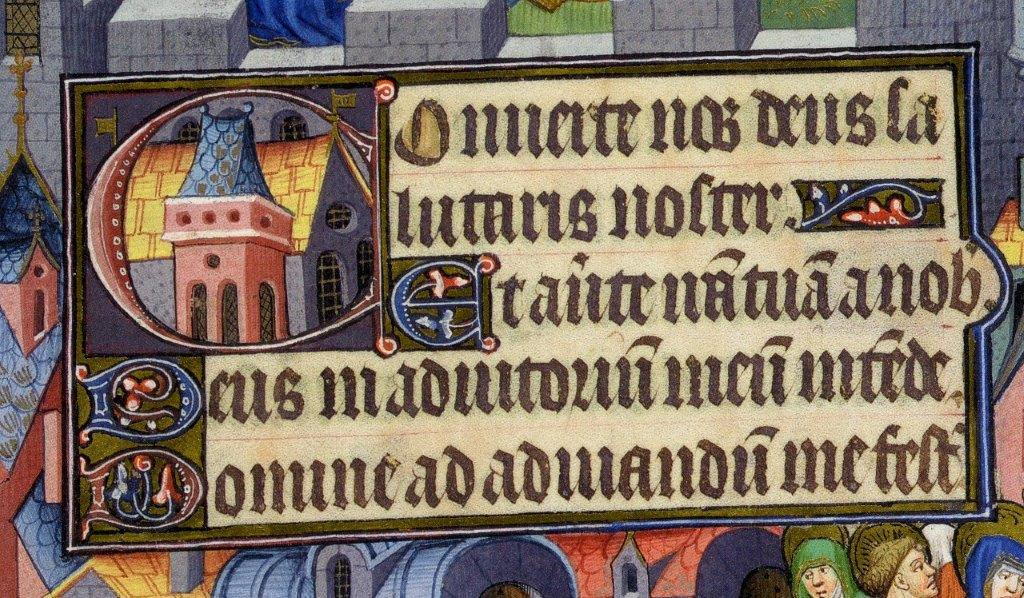 COnuerte nos deus sa
lutaris noster.
Et au̅te ira̅ tua̅ a nob̅.
Deus in adiutoriu̅ meu̅ inte̅de.
Domine ad adiuuandu̅ me fest̅